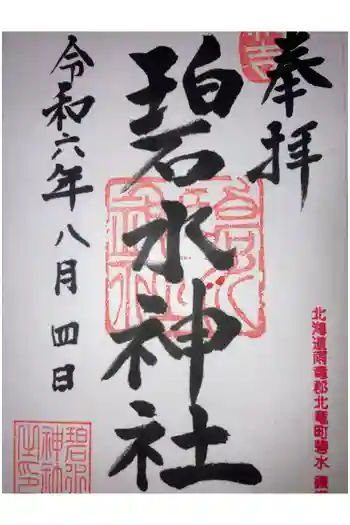 奉拝
北海道雨竜郡北竜町碧水
碧水神社
令和六年八月四日
碧水
神社
之印